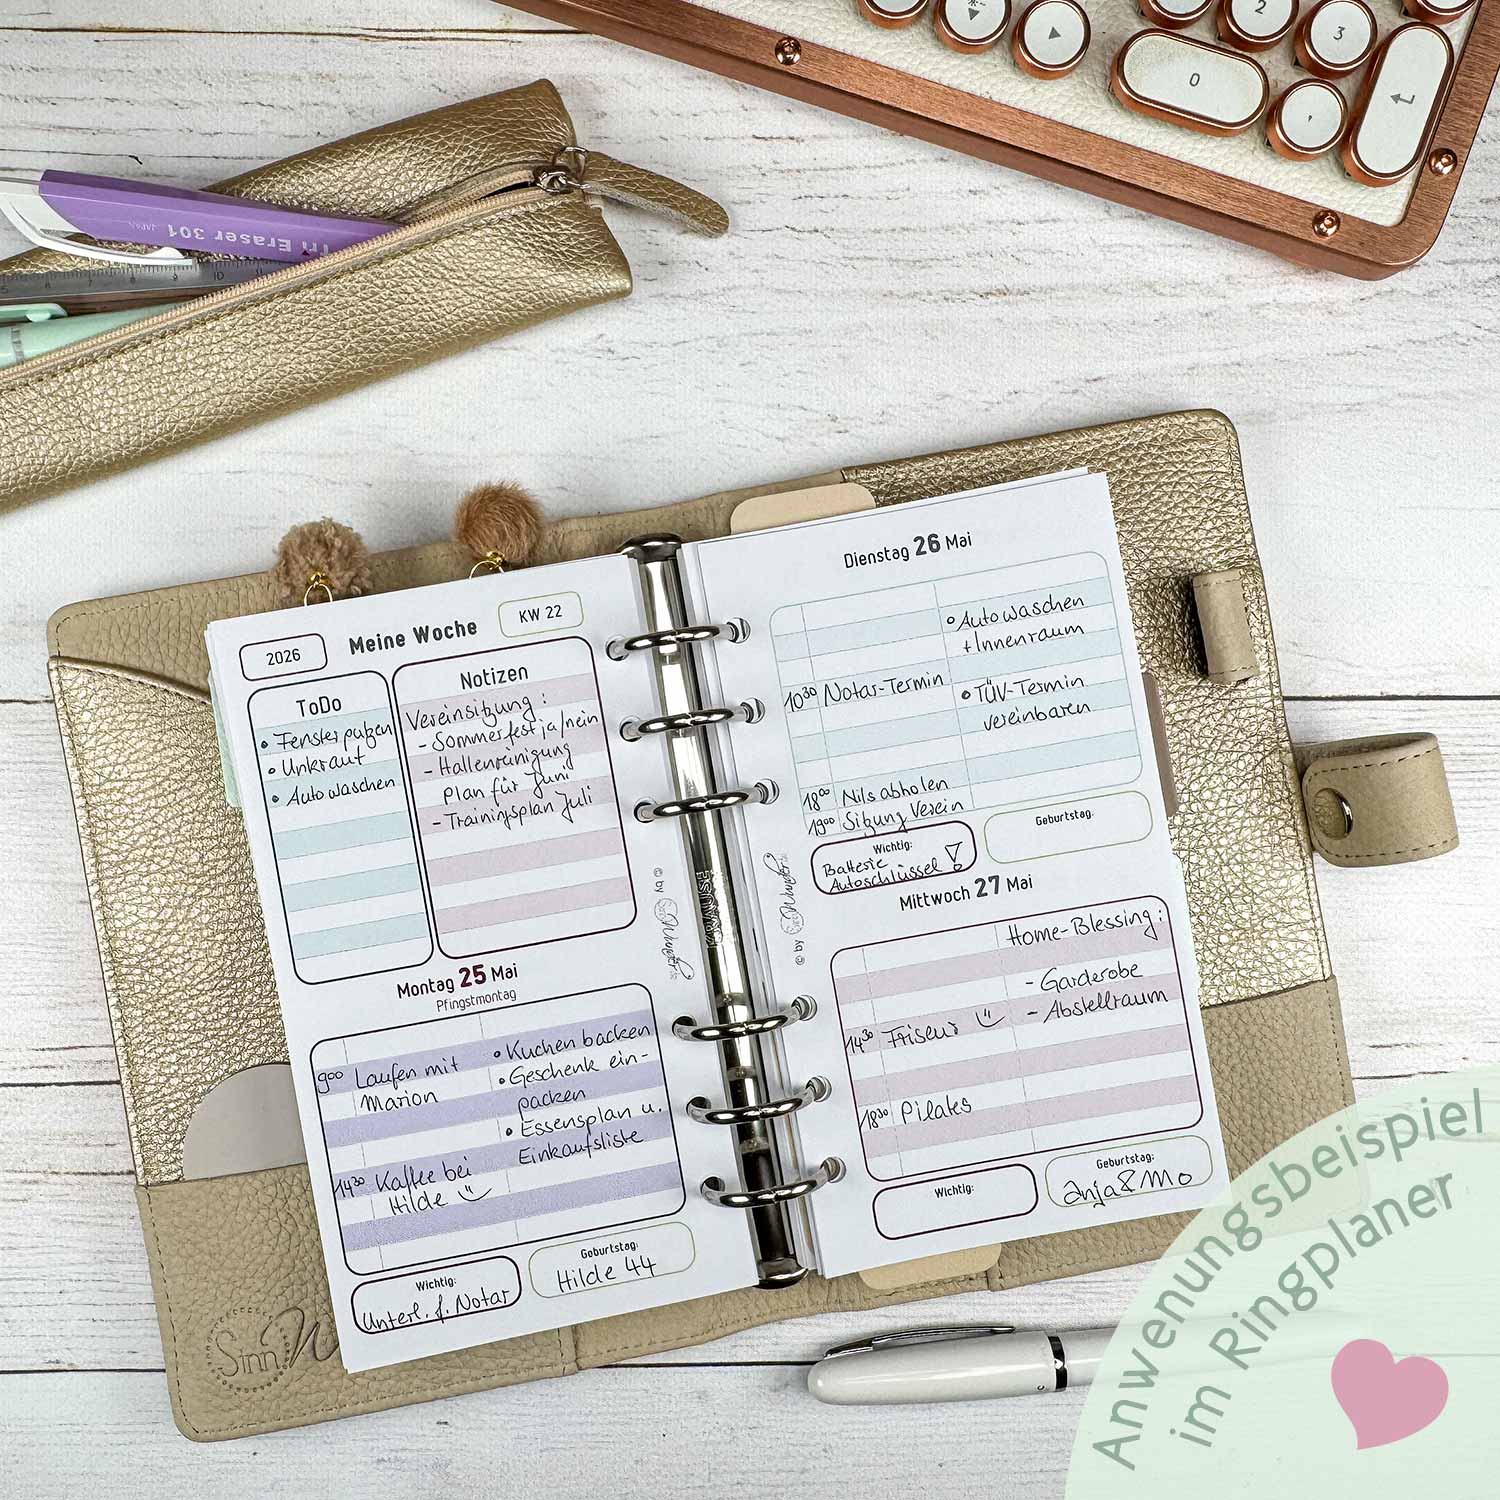 0
2
3
,
Tri Eraser 301
JAPAN
2026
Meine Woche
KW 22
ToDo
• Fenster putzen
• Unkraut
• Auto waschen
Notizen
Vereinsitzung :
- Sommerfest ja/nein
- Hallenreinigung
plan für Juni
- Trainingsplan Juli
Montag 25 Mai
Pfingstmontag
9⁰⁰ Laufen mit
Marion
14³⁰ Kaffee bei
Hilde
• Kuchen backen
• Geschenk ein-
packen
• Essensplan u.
Einkaufsliste
Wichtig:
Unterl. f. Notar
Geburtstag:
Hilde 44
© by SinnWunder
KRAUSE
© by SinnWunder
Dienstag 26 Mai
• Auto waschen
+ Innenraum
10³⁰ Notar-Termin
• TÜV-Termin
vereinbaren
18⁰⁰ Nils abholen
19⁰⁰ Sitzung Verein
Wichtig:
Batterie
Autoschlüssel !
Geburtstag:
Mittwoch 27 Mai
Home-Blessing :
- Garderobe
- Abstellraum
14³⁰ Friseur
18³⁰ Pilates
Wichtig:
Geburtstag:
Anja & Mo
Sinn W
Anwenungsbeispiel
im Ringplaner